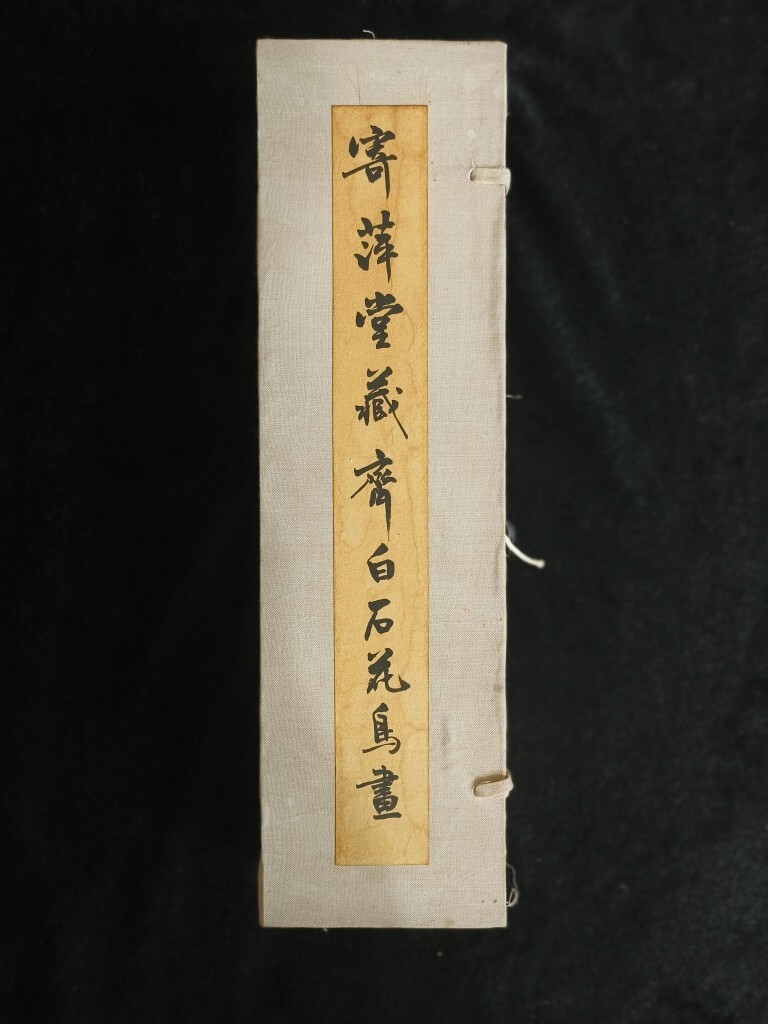 寄萍堂藏齊白石花鳥畫